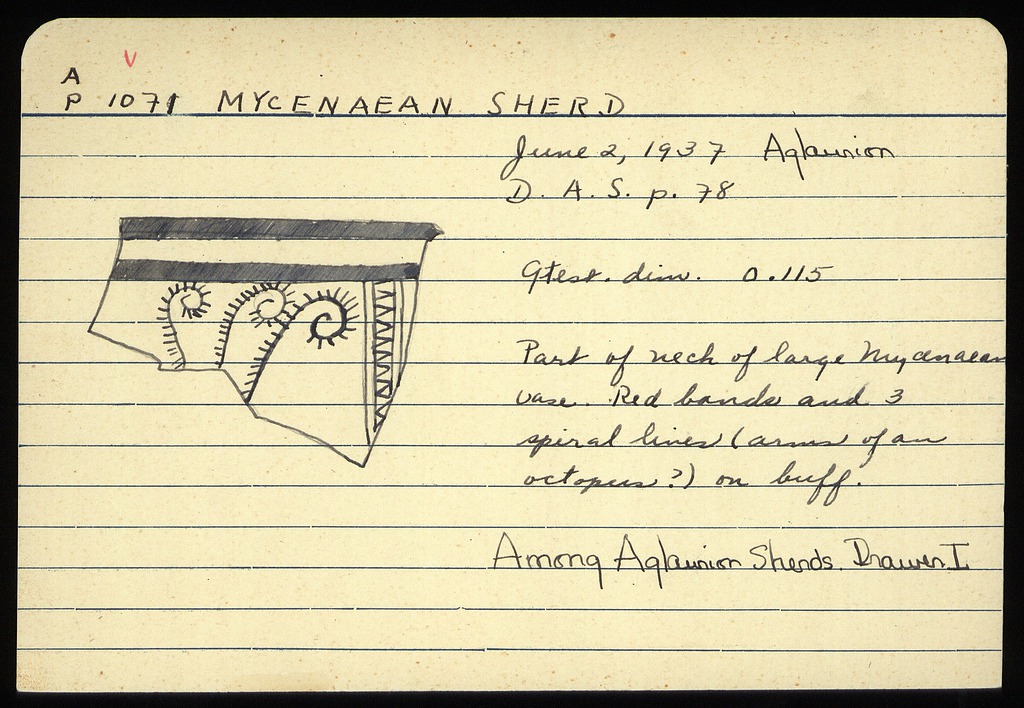 V
A
P 1071 MYCENAEAN SHERD
June 2, 1937 Aglaurion
D. A. S. p. 78
Gtest. dim. 0.115
Part of neck of large Mycenaean
vase. Red bands and 3
spiral lines (arms of an
octopus?) on buff.
Among Aglaurion Sherds. Drawer I